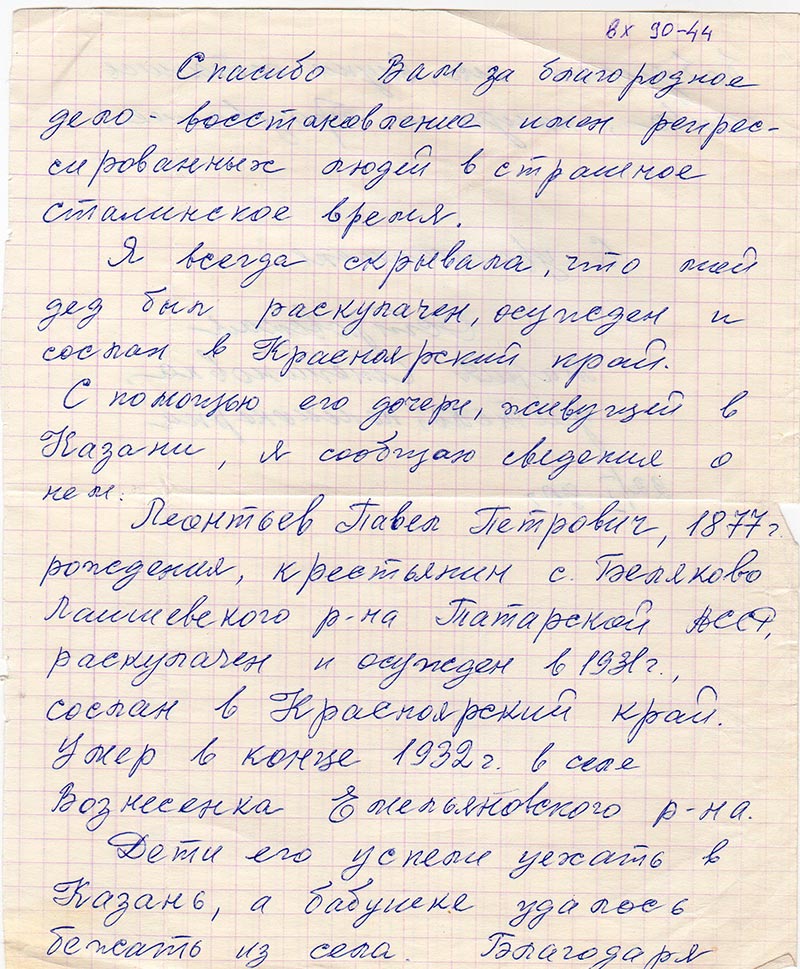 вх 90-44
Спасибо Вам за благородное
дело - восстановление имен репрес-
сированных людей в страшное
сталинское время.
Я всегда скрывала, что мой
дед был раскулачен, осужден и
сослан в Красноярский край.
С помощью его дочери, живущей в
Казани, я сообщаю сведения о
нем:
Леонтьев Павел Петрович, 1877 г.
рождения, крестьянин с. Беляково
Лаишевского р-на Татарской АССР,
раскулачен и осужден в 1931 г.,
сослан в Красноярский край.
Умер в конце 1932 г. в селе
Вознесенка Емельяновского р-на.
Дети его успели уехать в
Казань, а бабушке удалось
бежать из села. Благодаря